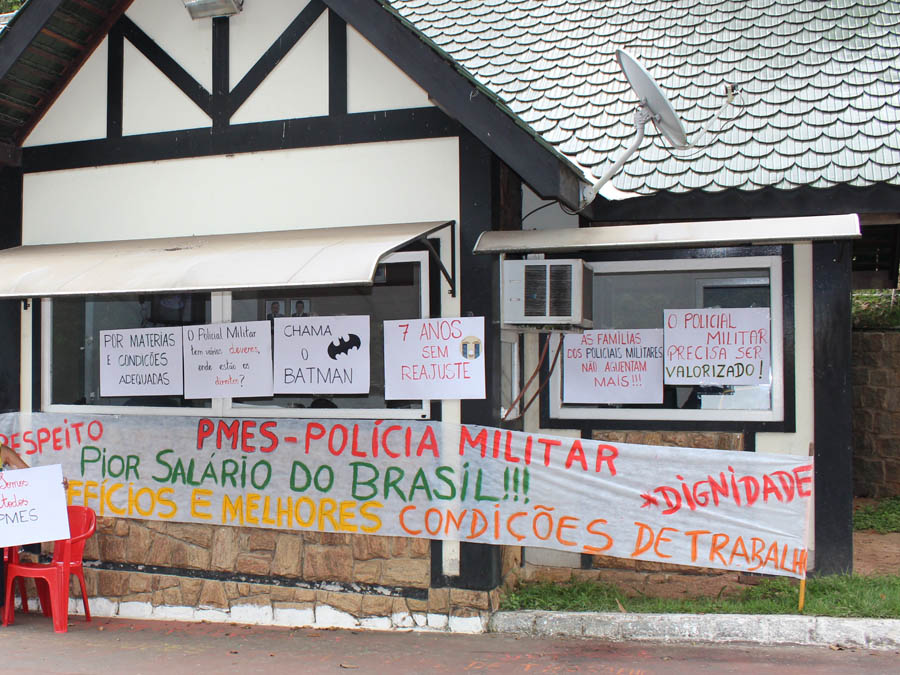 POR MATERIAS
E CONDIÇÕES
ADEQUADAS
O Policial Militar
tem vários deveres,
onde estão os
direitos?
CHAMA
O
BATMAN
7 ANOS
SEM
REAJUSTE
AS FAMÍLIAS
DOS POLICIAIS MILITARES
NÃO AGUENTAM
MAIS!!!
O POLICIAL
MILITAR
PRECISA SER
VALORIZADO!
RESPEITO
PMES-POLÍCIA MILITAR
PIOR SALÁRIO DO BRASIL!!!
EFFÍCIOS E MELHORES CONDIÇÕES DE TRABALH
*DIGNIDADE
Somos
todos
PMES